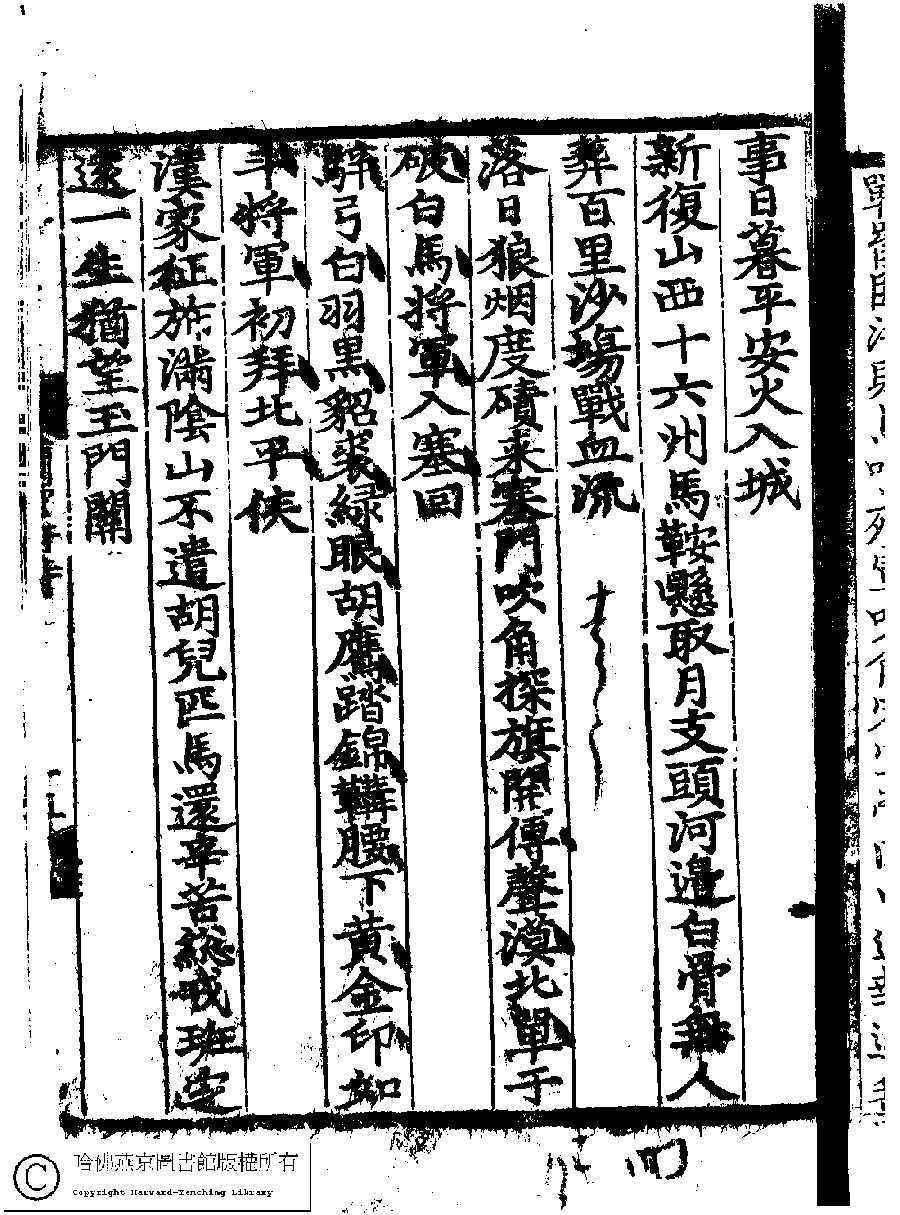 事日暮平安火入城
新復山西十六州馬鞍懸取月支頭河邊白骨無人
葬百里沙場戰血流
落日狼烟度磧来塞門吹角探旗開傳聲漠北單于
破白馬將軍入塞回
騂弓白羽黒貂裘綠眼胡鷹踏錦鞲腰下黄金印如
斗將軍初拜北平侯
漢家征旆滿陰山不遣胡兒匹馬還辛苦総戎班定
遠一生猶望玉門關
哈佛燕京圖書館版權所有
Copyright Harvard-Yenching Library